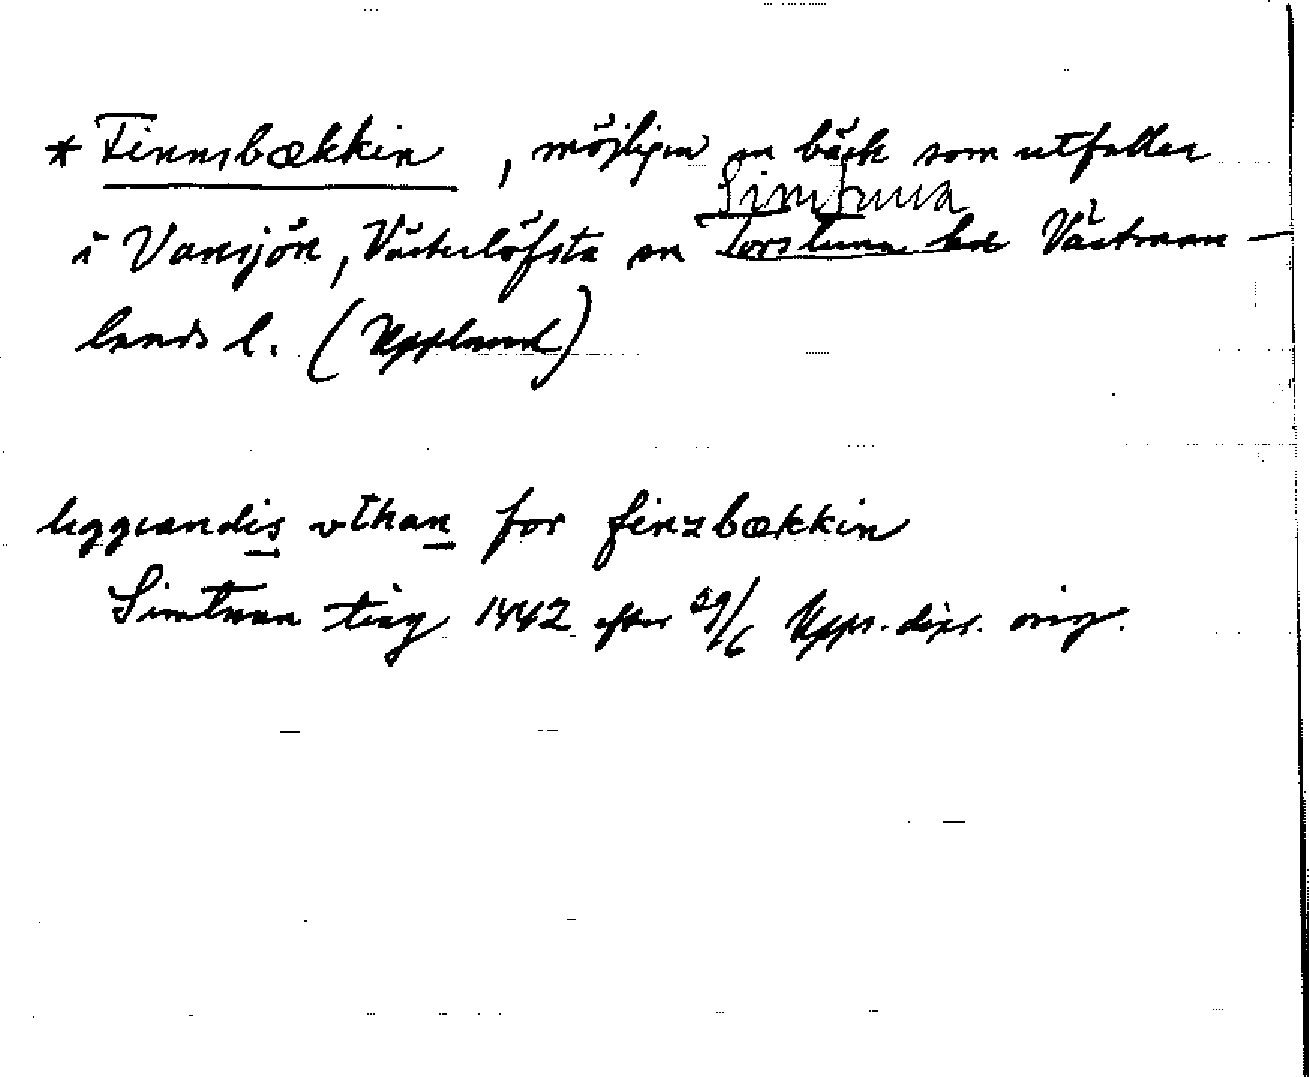 * Finnsbækkin, möjligen en bäck som utfaller
Simtuna
i Vansjön, Västerlöfsta sn Torstuna hd Västman-
lands l. (Uppland)
liggiandis vthan for finzbækkin
Simtuna ting 1442 efter 29/6 Upps. dipl. orig.